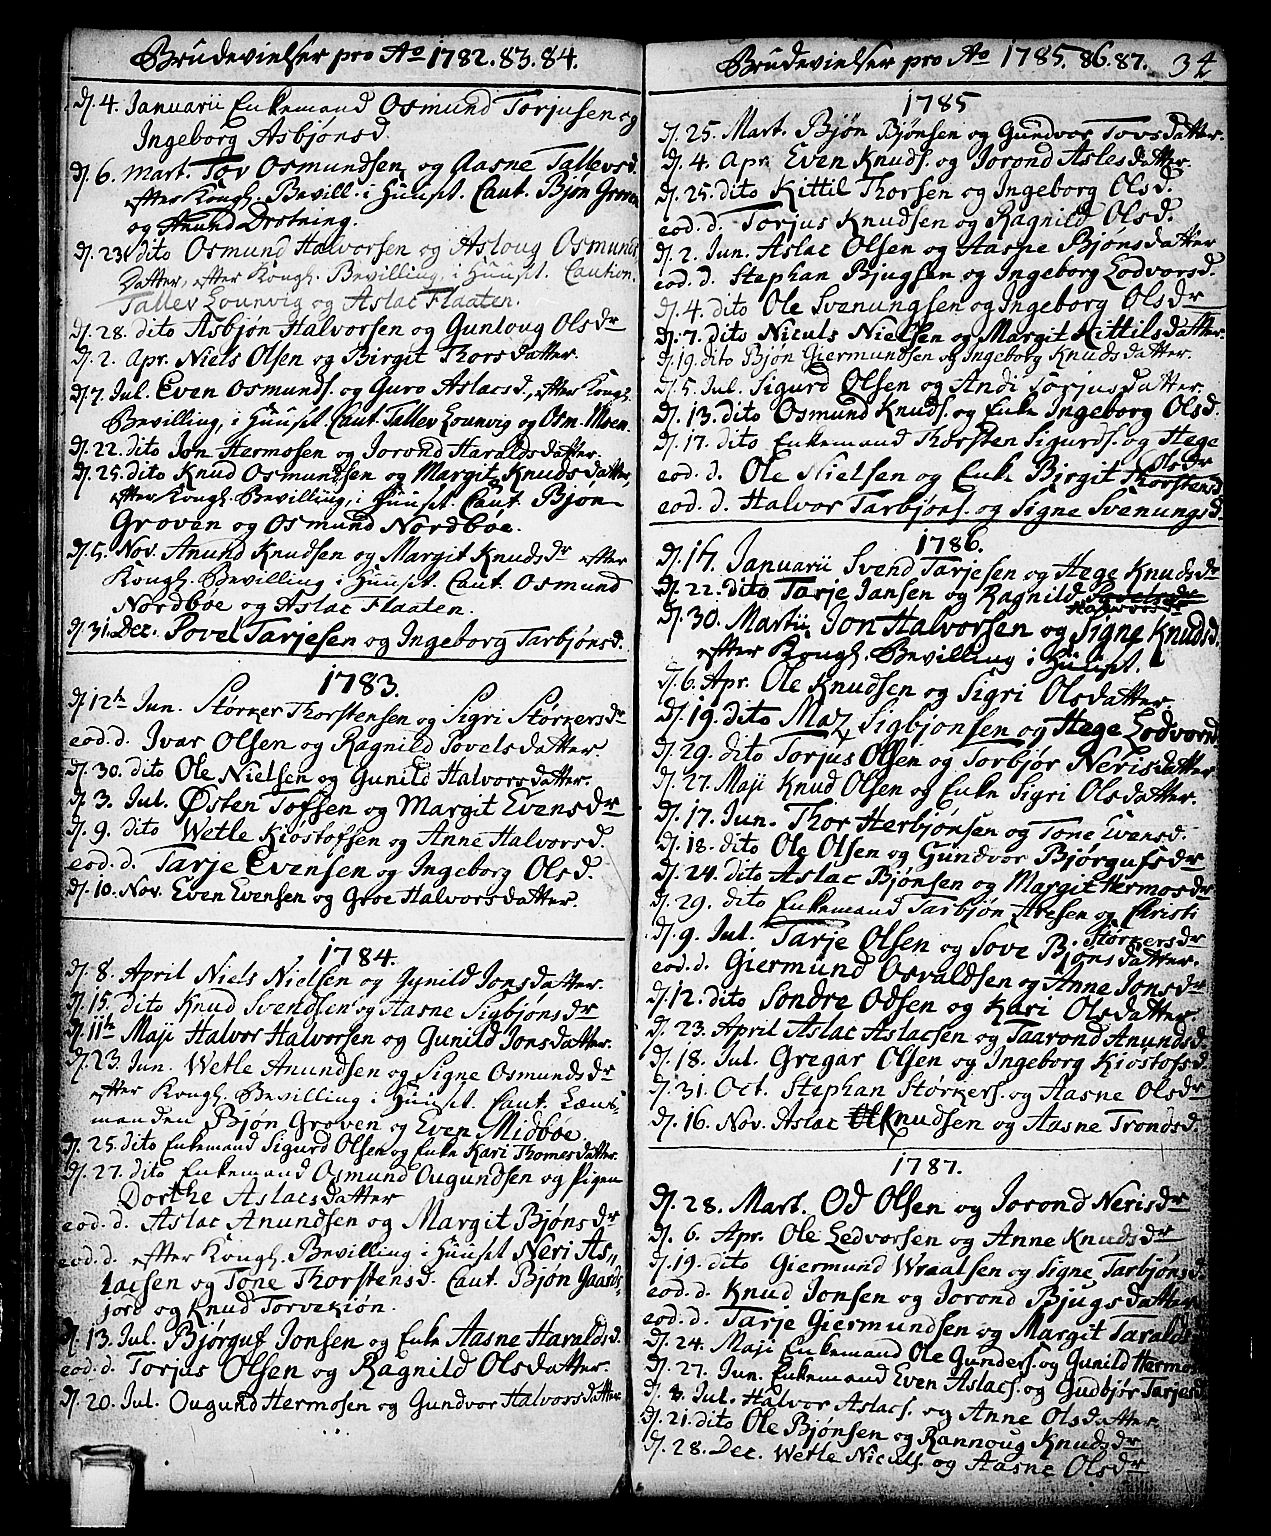 Brudevielser pro Ao 1782. 83. 84.
dj. 4. Januarii Enkemand Osmund Torjusen og
Ingeborg Asbjønsd.
dj. 6. Mart. Tov Osmundsen og Aasne Tallevsd.
efter Kongl. Bevill. i Huuset. Caut. Bjøn Groven
og Anund Drotning.
dj. 23. dito Osmund Halvorsen og Asloug Osmunds
Datter, efter Kongl. Bevilling, i Huuset. Caution.
Tallev Lounvig og Aslac Flaaten.
dj. 28. dito Asbjøn Halvorsen og Gunloug Olsdr
dj. 2. Apr. Niels Olsen og Birgit Thorsdatter.
dj. 7. Jul. Even Osmunds. og Guro Aslacsd., efter Kongl.
Bevilling, i Huuset. Caut. Tallev Lounvig og Osm. Moen.
dj. 22. dito Jon Hermosen og Jorond Haraldsdatter.
dj. 25. dito Knud Osmundsen og Margit Knudsdatter,
efter Kongl. Bevilling, i Huuset. Caut. Bjøn
Groven og Osmund Nordbøe.
dj. 5. Nov. Anund Knudsen og Margit Knudsdr efter
Kongl. Bevilling i Huuset. Caut. Osmund
Nordbøe og Aslac Flaaten.
dj. 31. Dec. Povel Tarjesen og Ingeborg Tarbjønsd.
1783.
dj. 12th Jun. Størker Thorstensen og Sigri Størkersdr
eod. d. Ivar Olsen og Ragnild Povelsdatter
dj. 30. dito Ole Nielsen og Gunild Halvorsdatter.
dj. 3. Jul. Østen Tofsen og Margit Evensdr
dj. 9. dito Wetle Kiostofsen og Anne Halvorsd.
eod. d. Tarje Evensen og Ingeborg Olsd.
dj. 10. Nov. Even Evensen og Groe Halvorsdatter.
1784.
dj. 8. April Niels Nielsen og Gynild Jonsdatter.
dj. 15. dito Knud Svendsen og Aasne Sigbjønsdr
dj. 11th Maji Halvor Halvorsen og Gunild Jonsdatter.
dj. 23. Jun. Wetle Anundsen og Signe Osmundsdr
efter Kongl. Bevilling i Huuset. Caut. Læns-
manden Bjøn Groven og Even Midbøe.
dj. 25. dito Enkemand Sigurd Olsen og Enke Kari Thomesdatter.
dj. 27. dito Enkemand Osmund Ougundsen og Pigen
Dorthe Aslacsdatter
eod. d. Aslac Anundsen og Margit Bjønsdr
eod. d. efter Kongl. Bevilling i Huuset Neri As-
lacsen og Tone Thorstensd. Caut. Bjøn Gaards-
jord og Knud Torvekiøn.
dj. 13. Jul. Bjørguf Jonsen og Enke Aasne Haraldsd.
eod. d. Torjus Olsen og Ragnild Olsdatter.
dj. 20. Jul. Ougund Hermosen og Gundvor Halvorsdatter
Brudevielser pro Ao 1785. 86. 87. 34
1785
dj. 25. Mart. Bjøn Bjønsen og Gundvor Tovsdatter.
dj. 4. Apr. Even Knuds. og Jorond Aslesdatter.
dj. 25. dito Kittil Thorsen og Ingeborg Olsd.
eod. d. Torjus Knudsen og Ragnild Olsd.
dj. 2. Jun. Aslac Olsen og Aasne Bjønsdatter
eod. d. Stephan Bjugsen og Ingeborg Lodvorsd.
dj. 4. dito Ole Svenungsen og Ingeborg Olsdr
dj. 7. dito Niculs Nielsen og Margit Kittilsdatter.
dj. 19. dito Bjøn Giermundsen og Ingeborg Knudsdatter.
dj. 5. Jul. Sigurd Olsen og Andi Torjusdatter
dj. 13. dito Osmund Knuds. og Enke Ingeborg Olsd.
dj. 17. dito Enkemand Thorsten Sigurds. og Hege
Olsdr
eod. d. Ole Nielsen og Enke Birgit Thorstensd.
eod. d. Halvor Tarbjøns. og Signe Svenungsd.
1786.
dj. 17. Januarii Svend Tarjesen og Hege Knudsdr
dj. 22. dito Tarje Jansen og Ragnild
Halvorsdr
dj. 30. Martii Jon Halvorsen og Signe Knudsd.
efter Kongl. Bevilling i Huuset.
dj. 6. Apr. Ole Knudsen og Sigri Olsdatter.
dj. 19. dito Maz Sigbjønsen og Hege Lodvorsd.
dj. 29. dito Torjus Olsen og Torbjør Nerisdatter
dj. 27. Maji Knud Olsen og Enke Sigri Olsdatter.
dj. 17. Jun. Thor Herbjønsen og Tone Evensd.
dj. 18. dito Ole Olsen og Gundvor Bjørgufsdr
dj. 24. dito Aslac Bjønsen og Margit Hermosdr
dj. 29. dito Enkemand Tarbjøn Aresen og Christi
Størkersdr
dj. 9. Jul. Tarje Olsen og Sove Bjønsdatter.
eod. d. Giermund Osvaldsen og Anne Jonsdr
dj. 12. dito Sondre Odsen og Kari Olsdatter.
dj. 23. April Aslac Aslacsen og Taarond Anundsd.
dj. 18. Jul. Gregar Olsen og Ingeborg Kiostofsd.
dj. 31. Oct. Stephan Størkers. og Aasne Olsdr
dj. 16. Nov. Aslac Knudsen og Aasne Trondsd.
1787.
dj. 28. Mart. Od Olsen og Jorond Nerisdr
dj. 6. Apr. Ole Ledvorsen og Anne Knudsdr
dj. 19. dito Giermund Wraalsen og Signe Tarbjønsd.
eod. d. Knud Jonsen og Jorond Bjugsdatter
eod. d. Tarje Giermundsen og Margit Taralds
dj. 24. Maji Enkemand Ole Gunders. og Gunild Hermos
dj. 27. Jun. Enkemand Even Aslacs. og Gudbjør Tarjesd.
dj. 8. Jul. Halvor Aslacs. og Anne Olsdatter.
dj. 21. dito Ole Bjønsen og Rannoug Knudsdr
dj. 28. Dec. Wetle Niculs. og Aasne Olsdr